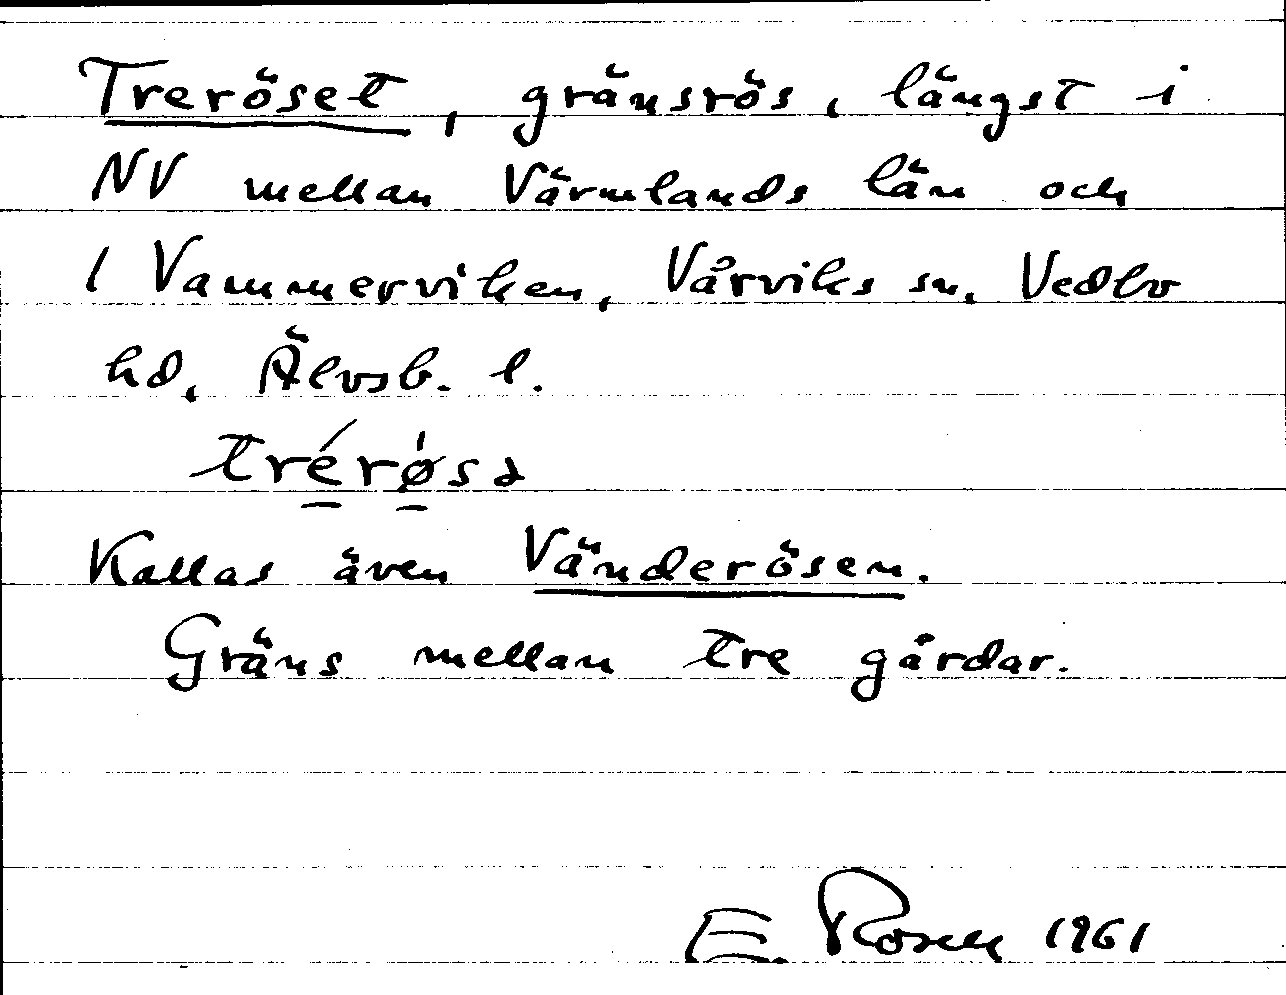 Treröset, gränsrös, längst i
NV mellan Värmlands län och
1 Vammerviken, Vårviks sn. Vedbo
hd, Älvsb. l.
tré̱rø̱̍sə
Kallas även Vänderösen.
Gräns mellan tre gårdar.
E. Rosell 1961